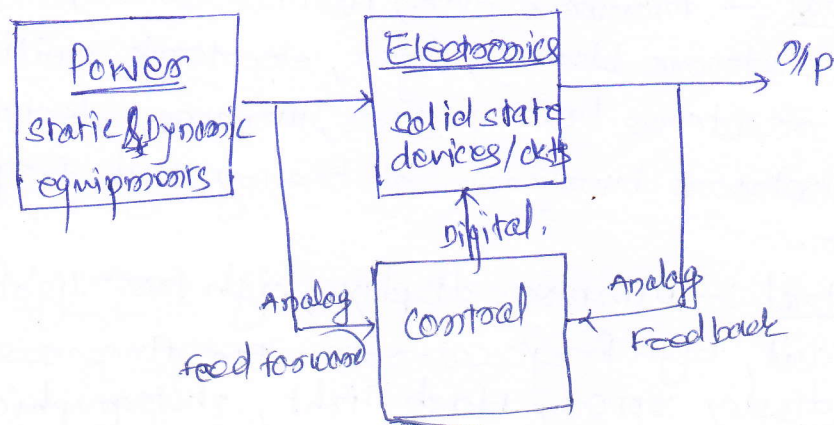 Power
Static & Dynamic
equipments
Electronics
solid state
devices/ckts
O/p
Digital.
Analog
Feed forward
Control
Analog
Feedback